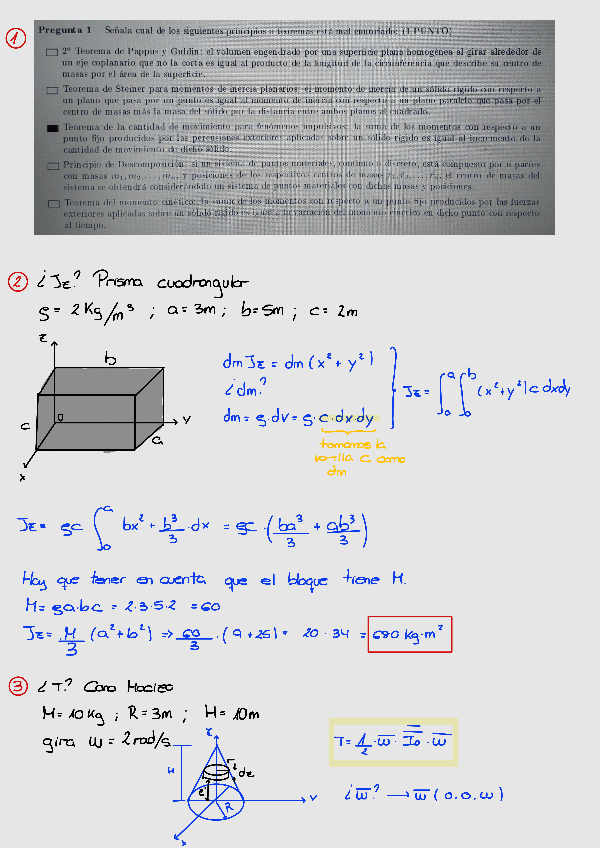 1
Pregunta 1 Señala cual de los siguientes principios o teoremas está mal enunciado: (1 PUNTO)
2º Teorema de Pappus y Guldin: el volumen engendrado por una superficie plana homogénea al girar alrededor de
un eje coplanario que no la corta es igual al producto de la longitud de la circunferencia que describe su centro de
masas por el área de la superficie.
Teorema de Steiner para momentos de inercia planarios: el momento de inercia de un sólido rígido con respecto a
un plano que pasa por un punto es igual al momento de inercia con respecto a un plano paralelo que pasa por el
centro de masas más la masa del sólido por la distancia entre ambos planos al cuadrado.
Teorema de la cantidad de movimiento para fenómenos impulsivos: la suma de los momentos con respecto a un
punto fijo producidos por las percusiones exteriores aplicadas sobre un sólido rígido es igual al incremento de la
cantidad de movimiento de dicho sólido
Principio de Descomposición: si un sistema de puntos materiales, continuo o discreto, está compuesto por n partes
con masas m₁, m₂, ..., mₙ, y posiciones de los respectivos centros de masas r₁, r₂, ..., rₙ, el centro de masas del
sistema se obtendrá considerándolo un sistema de puntos materiales con dichas masas y posiciones.
Teorema del momento cinético: la suma de los momentos con respecto a un punto fijo producidos por las fuerzas
exteriores aplicadas sobre un sólido rígido es igual a la variación del momento cinético en dicho punto con respecto
al tiempo.
2 ¿Jz? Prisma cuadrangular
ρ = 2 Kg/m³ ; a = 3m ; b = 5m ; c = 2m
z
b
0
y
c
a
x
dm Jz = dm (x² + y²)
¿dm?
dm = ρ·dV = ρ·c·dx·dy
Jz = ∫₀ᵃ ∫₀ᵇ (x² + y²) c dx dy
tomamos la
varilla c como
dm
Jz = ρc ∫₀ᵃ bx² + b³/3 · dx = ρc · (ba³/3 + ab³/3)
Hay que tener en cuenta que el bloque tiene M.
M = ρa·b·c = 2·3·5·2 = 60
Jz = M/3 (a² + b²) => 60/3 · (9 + 25) = 20 · 34 = 680 kg·m²
3 ¿T? Cono Macizo
M = 10 Kg ; R = 3m ; H = 10m
gira ω = 2 rad/s
z
H
r
dz
z
R
y
x
T = 1/2 · ω̄ · I̿o · ω̄
¿ω̄? → ω̄ (0, 0, ω)